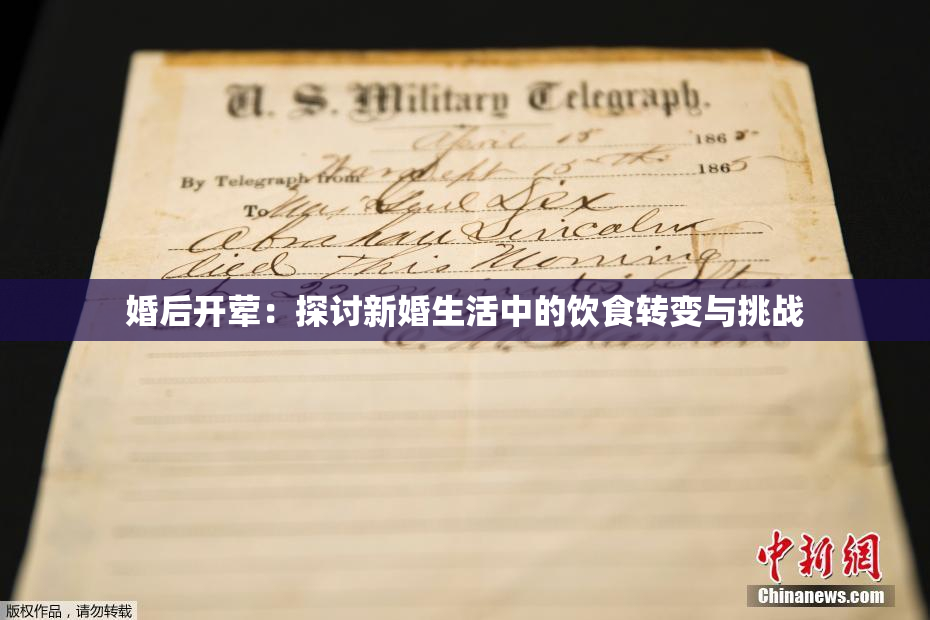 U. S. Military Telegraph.
April 15 1865
By Telegraph from War Dept 15th 1865
To Maj Genl Dix
Abraham Lincoln
died This Morning
at 22 minutes after
婚后开荤：探讨新婚生活中的饮食转变与挑战
E. M. Stanton
中新網
Chinanews.com
版权作品，请勿转载